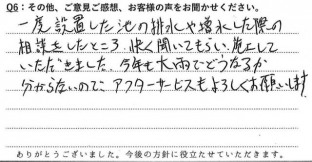 Q6：その他、ご意見ご感想、お客様の声をお聞かせください。
一度設置した池の排水や増水した際の
相談をしたところ、快く聞いてもらい、施工して
いただきました。今年も大雨でどうなるか
分からないので、アフターサービスもよろしくお願いします
ありがとうございました。今後の方針に役立たせていただきます。